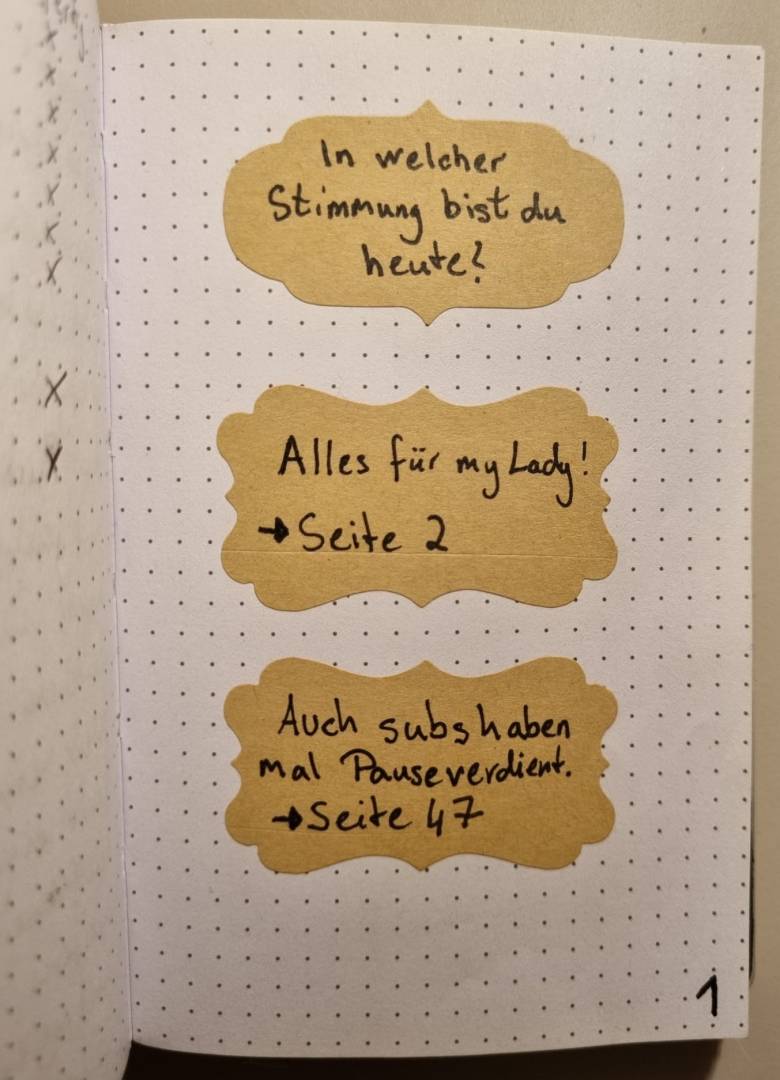 In welcher
Stimmung bist du
heute?
Alles für my Lady!
→ Seite 2
Auch subs haben
mal Pause verdient.
→ Seite 47
1
x
x
x
x
x
x
x
x
x